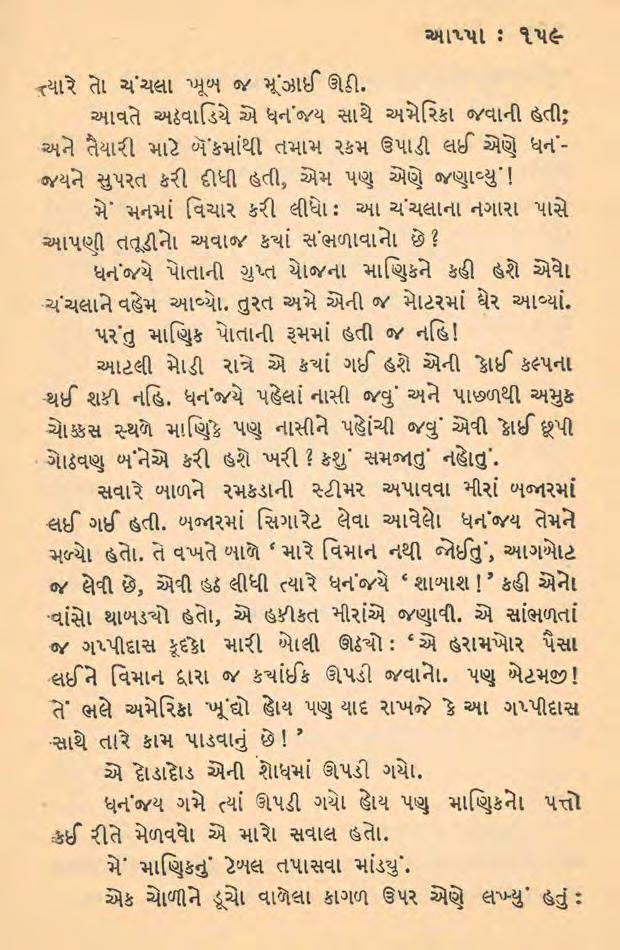 આપ્પા : ૧૫૯
ત્યારે તો ચંચલા ખૂબ જ મૂંઝાઈ ઊઠી.
આવતે અઠવાડિયે એ ધનંજય સાથે અમેરિકા જવાની હતી;
અને તૈયારી માટે બૅંકમાંથી તમામ રકમ ઉપાડી લઈ એણે ધનં-
જયને સુપરત કરી દીધી હતી, એમ પણ એણે જણાવ્યું!
મેં મનમાં વિચાર કરી લીધો: આ ચંચલાના નગારા પાસે
આપણી તતૂડીનો અવાજ કયાં સંભળાવાનો છે?
ધનંજયે પોતાની ગુપ્ત યોજના માણિકને કહી હશે એવો
ચંચલાને વહેમ આવ્યો. તુરત અમે એની જ મોટરમાં ઘેર આવ્યાં.
પરંતુ માણિક પોતાની રૂમમાં હતી જ નહિ!
આટલી મોડી રાત્રે એ કયાં ગઈ હશે એની કોઈ કલ્પના
થઈ શકી નહિ. ધનંજયે પહેલાં નાસી જવું અને પાછળથી અમુક
ચોક્કસ સ્થળે માણિકે પણ નાસીને પહોંચી જવું એવી કોઈ છૂપી
ગોઠવણ બંનેએ કરી હશે ખરી? કશું સમજાતું નહોતું.
સવારે બાળને રમકડાની સ્ટીમર અપાવવા મીરાં બજારમાં
લઈ ગઈ હતી. બજારમાં સિગારેટ લેવા આવેલો ધનંજય તેમને
મળ્યો હતો. તે વખતે બાળે ‘મારે વિમાન નથી જોઈતું, આગબોટ
જ લેવી છે, એવી હઠ લીધી ત્યારે ધનંજયે ‘શાબાશ!’ કહી એનો
વાંસો થાબડચો હતો, એ હકીકત મીરાંએ જણાવી. એ સાંભળતાં
જ ગપ્પીદાસ કૂદકો મારી બોલી ઊઠચો : ‘એ હરામખોર પૈસા
લઈને વિમાન દ્વારા જ કયાંઈક ઊપડી જવાનો. પણ બેટમજી!
તેં ભલે અમેરિકા ખૂંદ્યો હોય પણ યાદ રાખજે કે આ ગપ્પીદાસ
સાથે તારે કામ પાડવાનું છે!’
એ દોડાદોડ એની શોધમાં ઊપડી ગયો.
ધનંજય ગમે ત્યાં ઊપડી ગયો હોય પણ માણિકનો પત્તો
કઈ રીતે મેળવવો એ મારો સવાલ હતો.
મેં માણિકનું ટેબલ તપાસવા માંડયું.
એક ચોળીને ડૂચો વાળેલા કાગળ ઉપર એણે લખ્યું હતું :